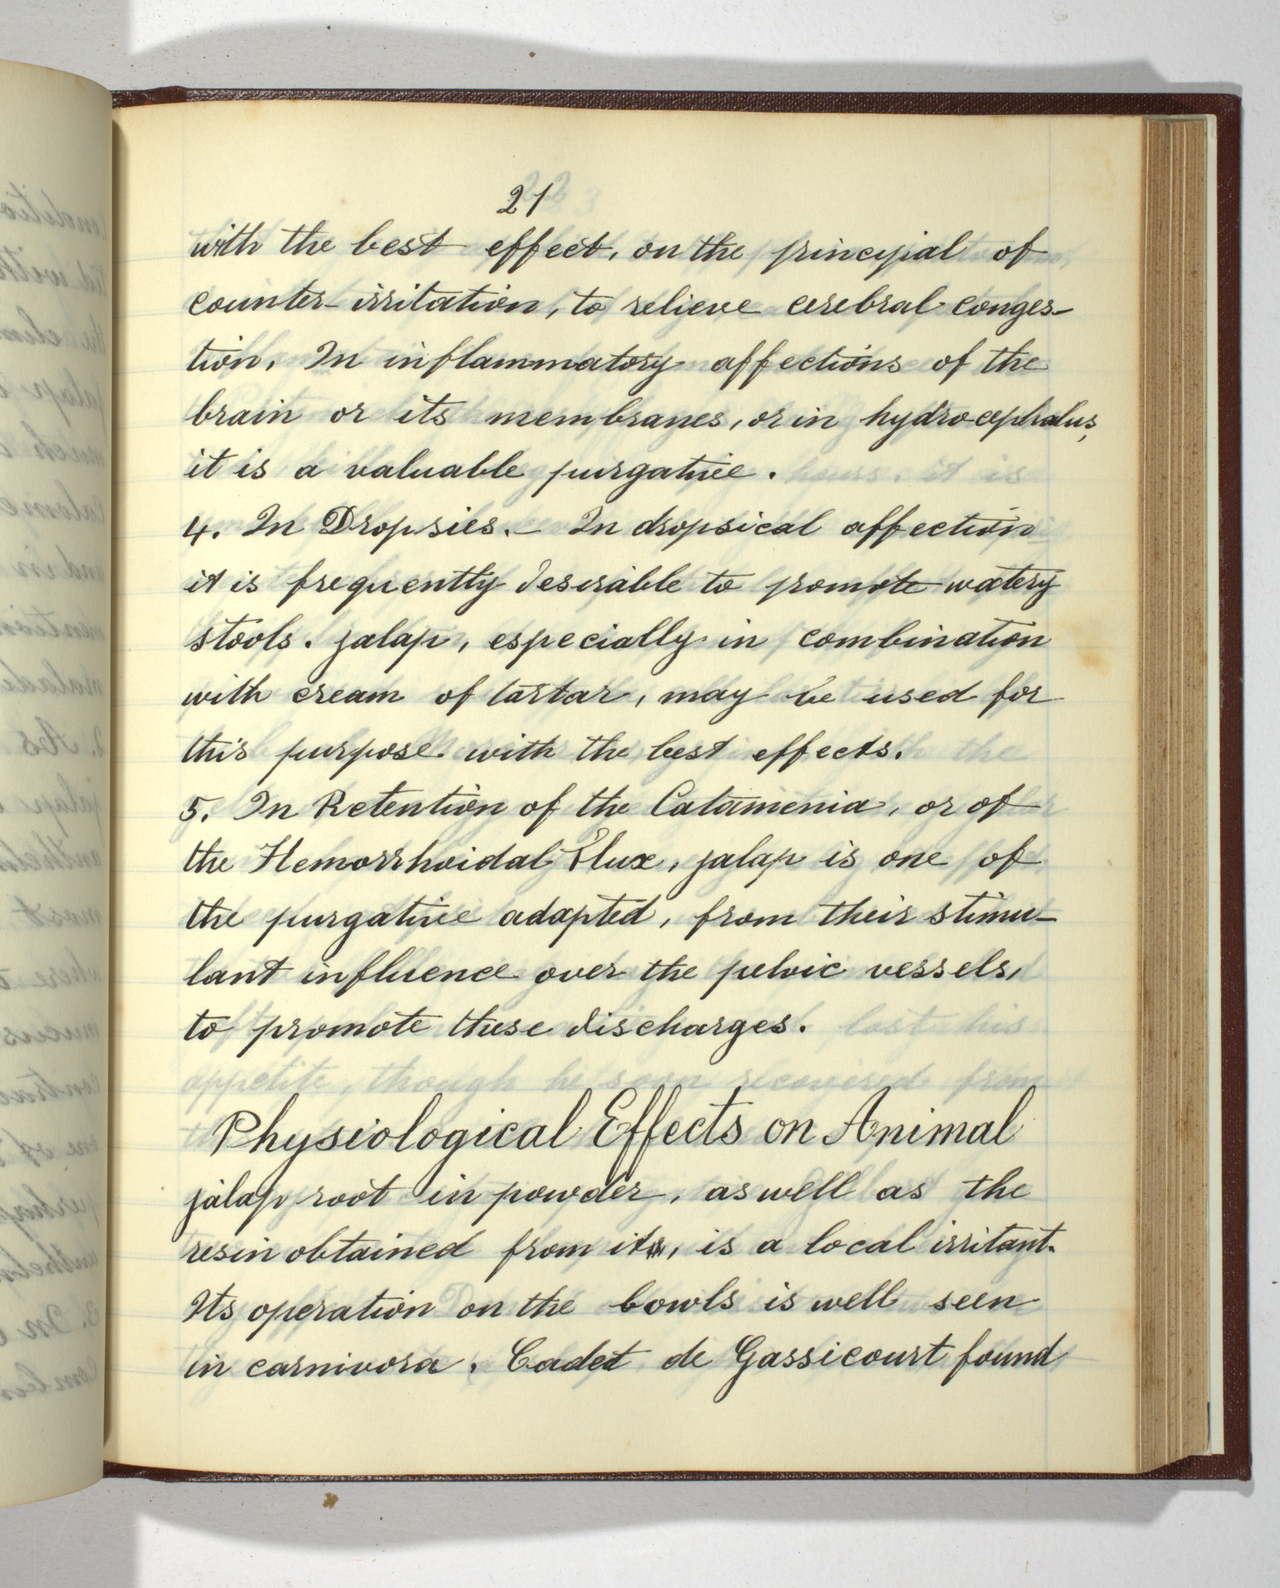 21
with the best effect, on the principal of
counter-irritation, to relieve cerebral conges-
tion. In inflammatory affections of the
brain or its membranes, or in hydrocephalus,
it is a valuable purgative.
4. In Dropsies.- In dropsical affection
it is frequently desirable to promote watery
stools. jalap, especially in combination
with cream of tartar, may be used for
this purpose with the best effects.
5. In Retention of the Catamenia, or of
the Hemorrhoidal Flux, jalap is one of
the purgative adapted, from their stimu-
lant influence over the pelvic vessels,
to promote these discharges.
Physiological Effects on Animal
jalap root in powder, as well as the
resin obtained from it, is a local irritant.
Its operation on the bowls is well seen
in carnivora. Cadet de Gassicourt found